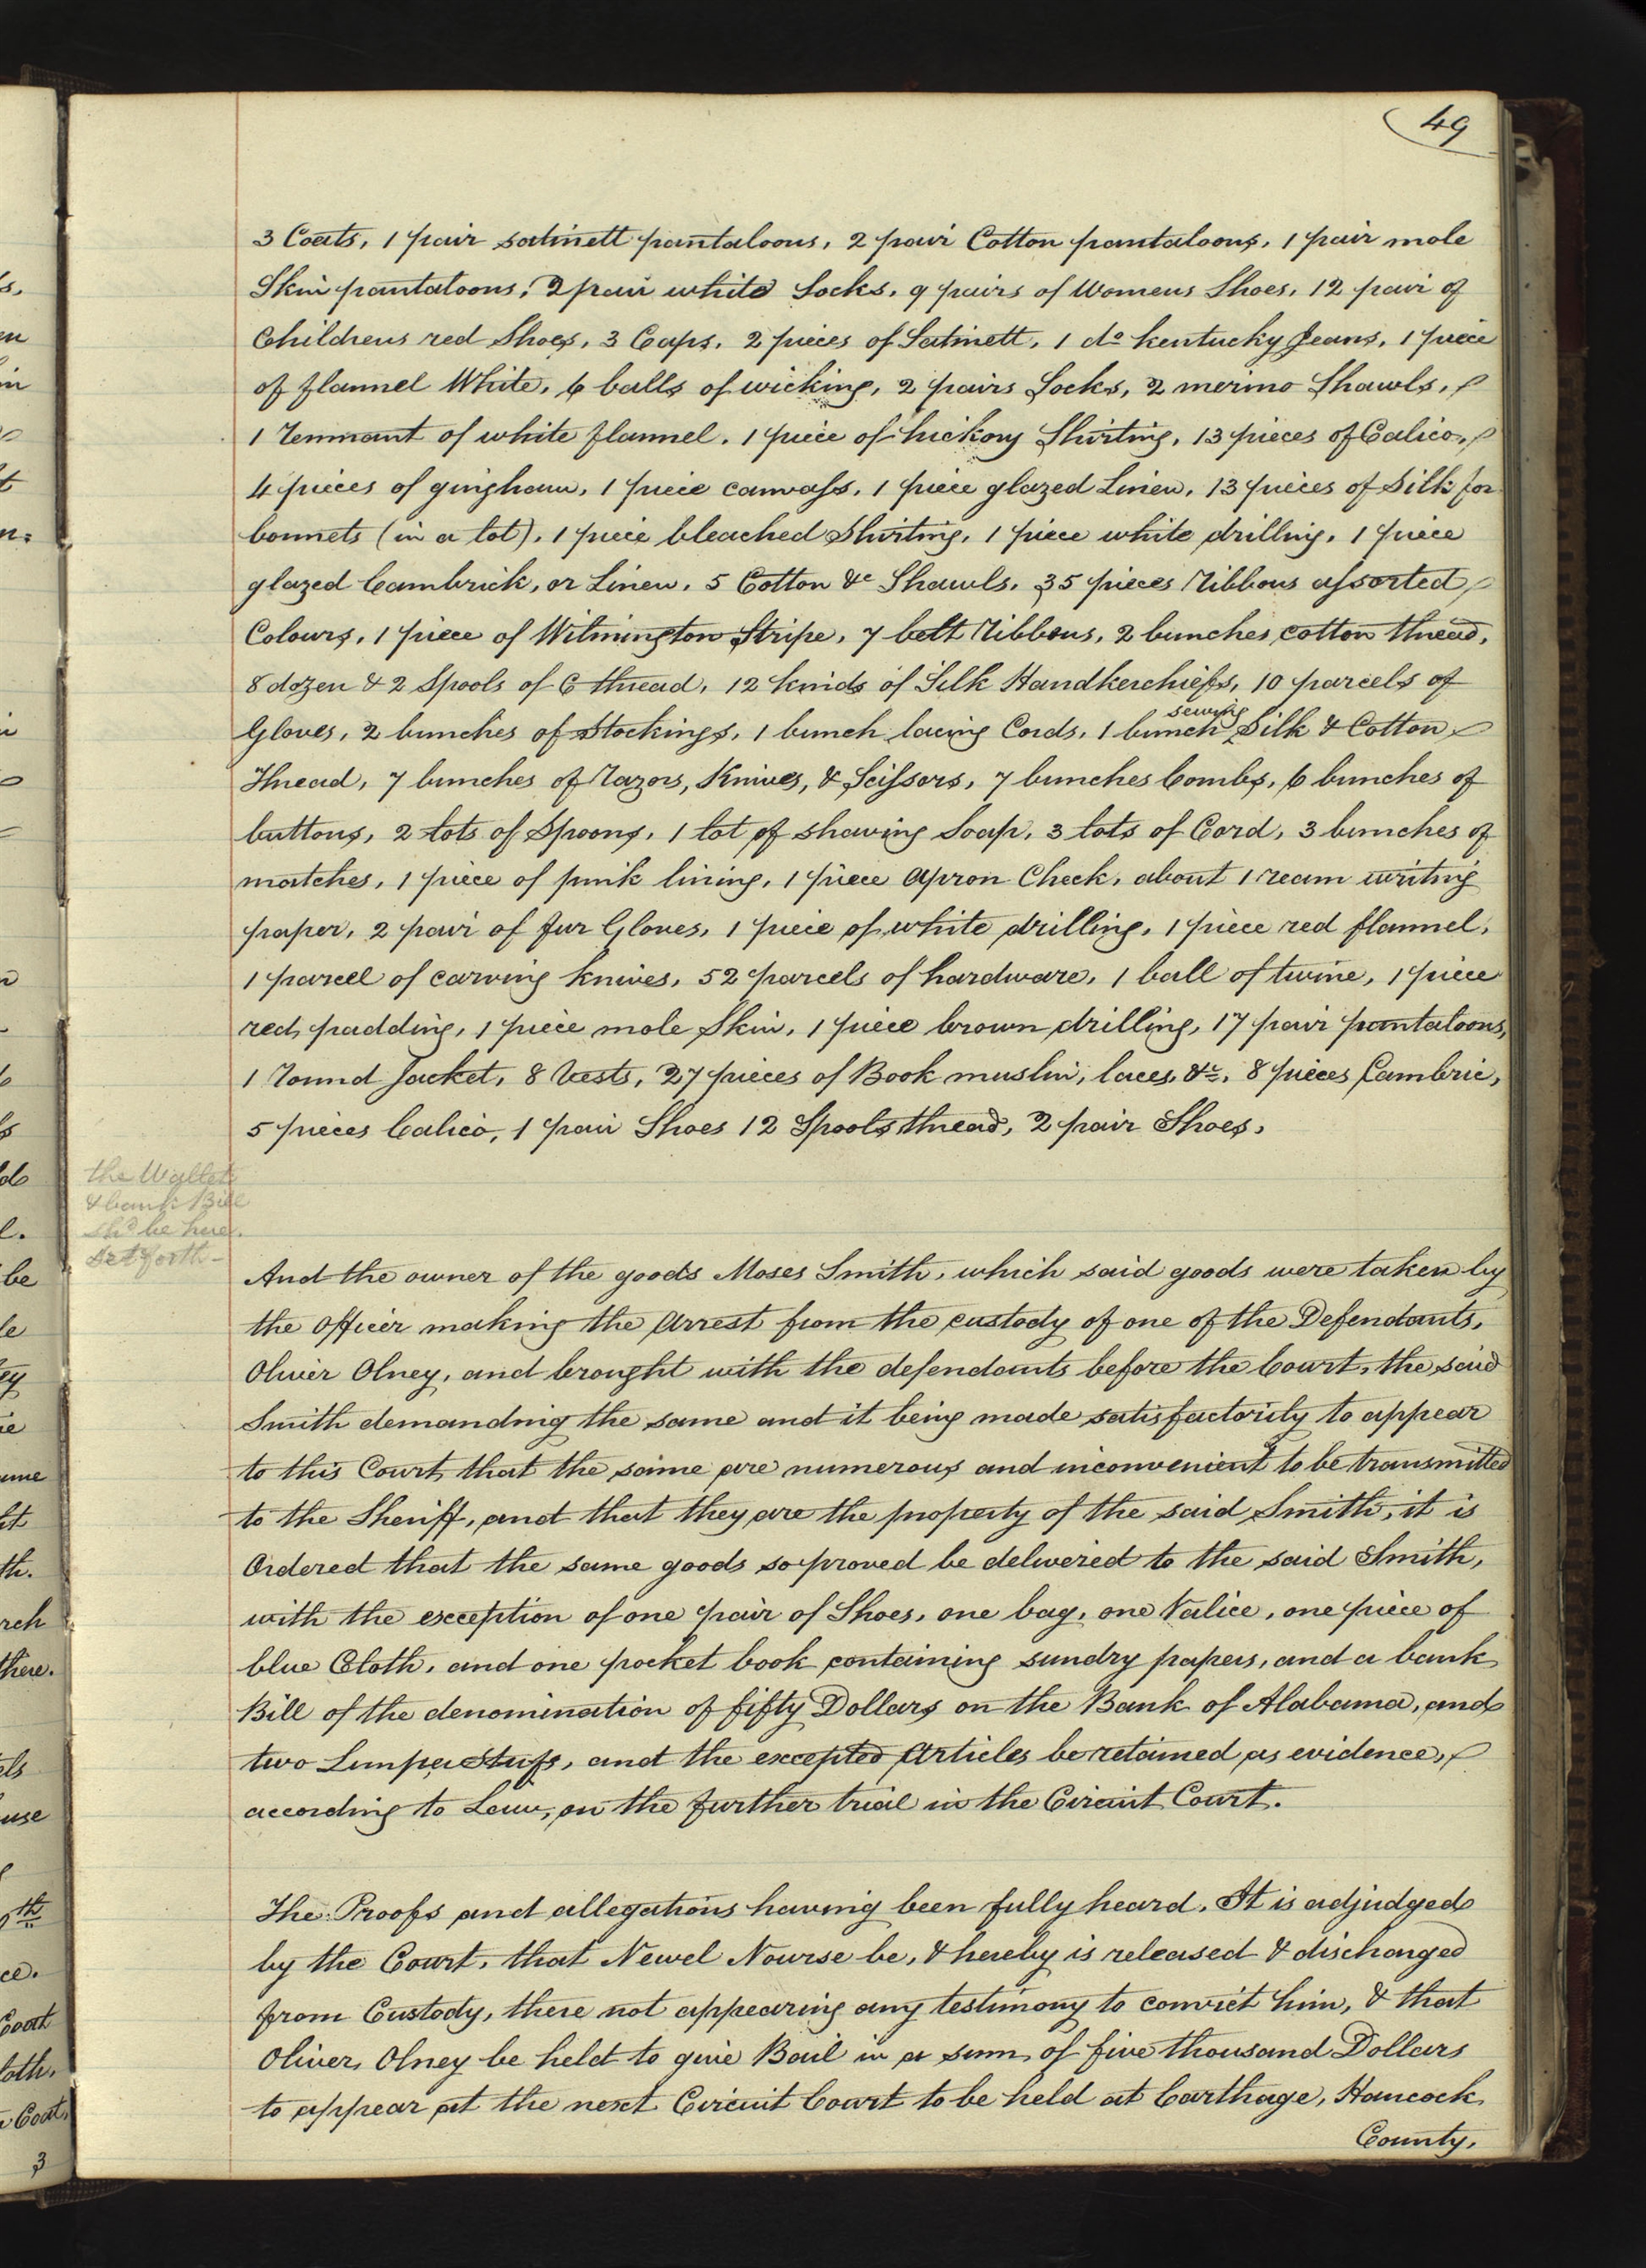 49
3 Coats, 1 pair satinett pantaloons, 2 pair Cotton pantaloons, 1 pair mole
Skin pantaloons, 2 pair white Socks, 9 pairs of Womens Shoes, 12 pair of
Childrens red Shoes, 3 Caps, 2 pieces of Satinett, 1 do kentucky Jeans, 1 piece
of flannel White, 6 balls of wicking, 2 pairs Socks, 2 merino Shawls,
1 Remnant of white flannel, 1 piece of hickory Shirting, 13 pieces of Calico,
4 pieces of gingham, 1 piece canvass, 1 piece glazed Linen, 13 pieces of Silk for
bonnets (in a lot), 1 piece bleached Shirting, 1 piece white drilling, 1 piece
glazed Cambrick, or Linen, 5 Cotton &c Shawls, 35 pieces Ribbons assorted
Colours, 1 piece of Wilmington Stripe, 7 belt Ribbons, 2 bunches cotton thread,
8 dozen & 2 Spools of C thread, 12 kinds of Silk Handkerchiefs, 10 parcels of
Gloves, 2 bunches of Stockings, 1 bunch lacing Cords, 1 bunch sewing Silk & Cotton
Thread, 7 bunches of Razors, Knives, & Scissors, 7 bunches Combs, 6 bunches of
buttons, 2 lots of Spoons, 1 lot of shaving Soap, 3 lots of Cord, 3 bunches of
matches, 1 piece of pink lining, 1 piece Apron Check, about 1 ream writing
paper, 2 pair of fur Gloves, 1 piece of white drilling, 1 piece red flannel,
1 parcel of carving knives, 52 parcels of hardware, 1 ball of twine, 1 piece
red padding, 1 piece mole Skin, 1 piece brown drilling, 17 pair pantaloons,
1 Round Jacket, 8 Vests, 27 pieces of Book muslin, laces, &c, 8 pieces Cambric,
5 pieces Calico, 1 pair Shoes 12 Spools thread, 2 pair Shoes.
the Wallet
& bank Bill
shd be here
set forth -
And the owner of the goods Moses Smith, which said goods were taken by
the officer making the Arrest from the custody of one of the Defendants,
Oliver Olney, and brought with the defendants before the Court, the said
Smith demanding the same and it being made satisfactorily to appear
to this Court that the same are numerous and inconvenient to be transmitted
to the Sheriff, and that they are the property of the said Smith, it is
Ordered that the same goods so proved be delivered to the said Smith,
with the exception of one pair of Shoes, one bag, one Valice, one piece of
blue Cloth, and one pocket book containing sundry papers, and a bank
Bill of the denomination of fifty Dollars on the Bank of Alabama, and
two and the excepted Articles be retained as evidence,
according to Law, on the further trial in the Circuit Court.
The Proofs and allegations having been fully heard. It is adjudged
by the Court, that Newel Nourse be, & hereby is released & discharged
from Custody, there not appearing any testimony to convict him, & that
Oliver Olney be held to give Bail in a sum of five thousand Dollars
to appear at the next Circuit Court to be held at Carthage, Hancock
County.